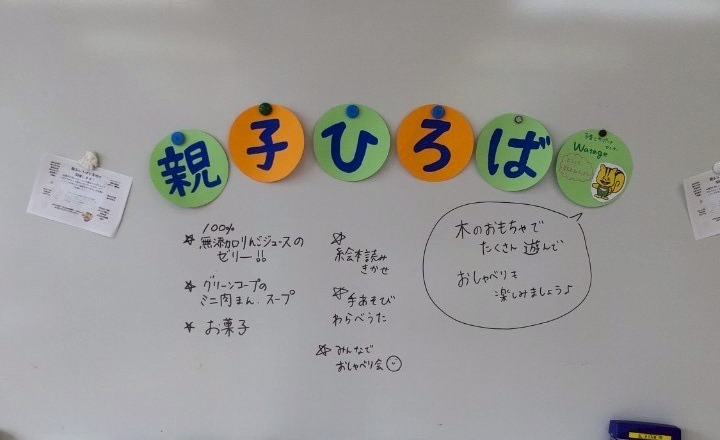 親子ひろば
Watage
100%
☆無添加りんごジュースの
ゼリー!!
☆グリーンコープの
ミニ肉まん.スープ
☆お菓子
☆
絵本読み
きかせ
☆手あそび
わらべうた
☆みんなで
おしゃべり会
木のおもちゃで
たくさん遊んで
おしゃべりも
楽しみましょう♪